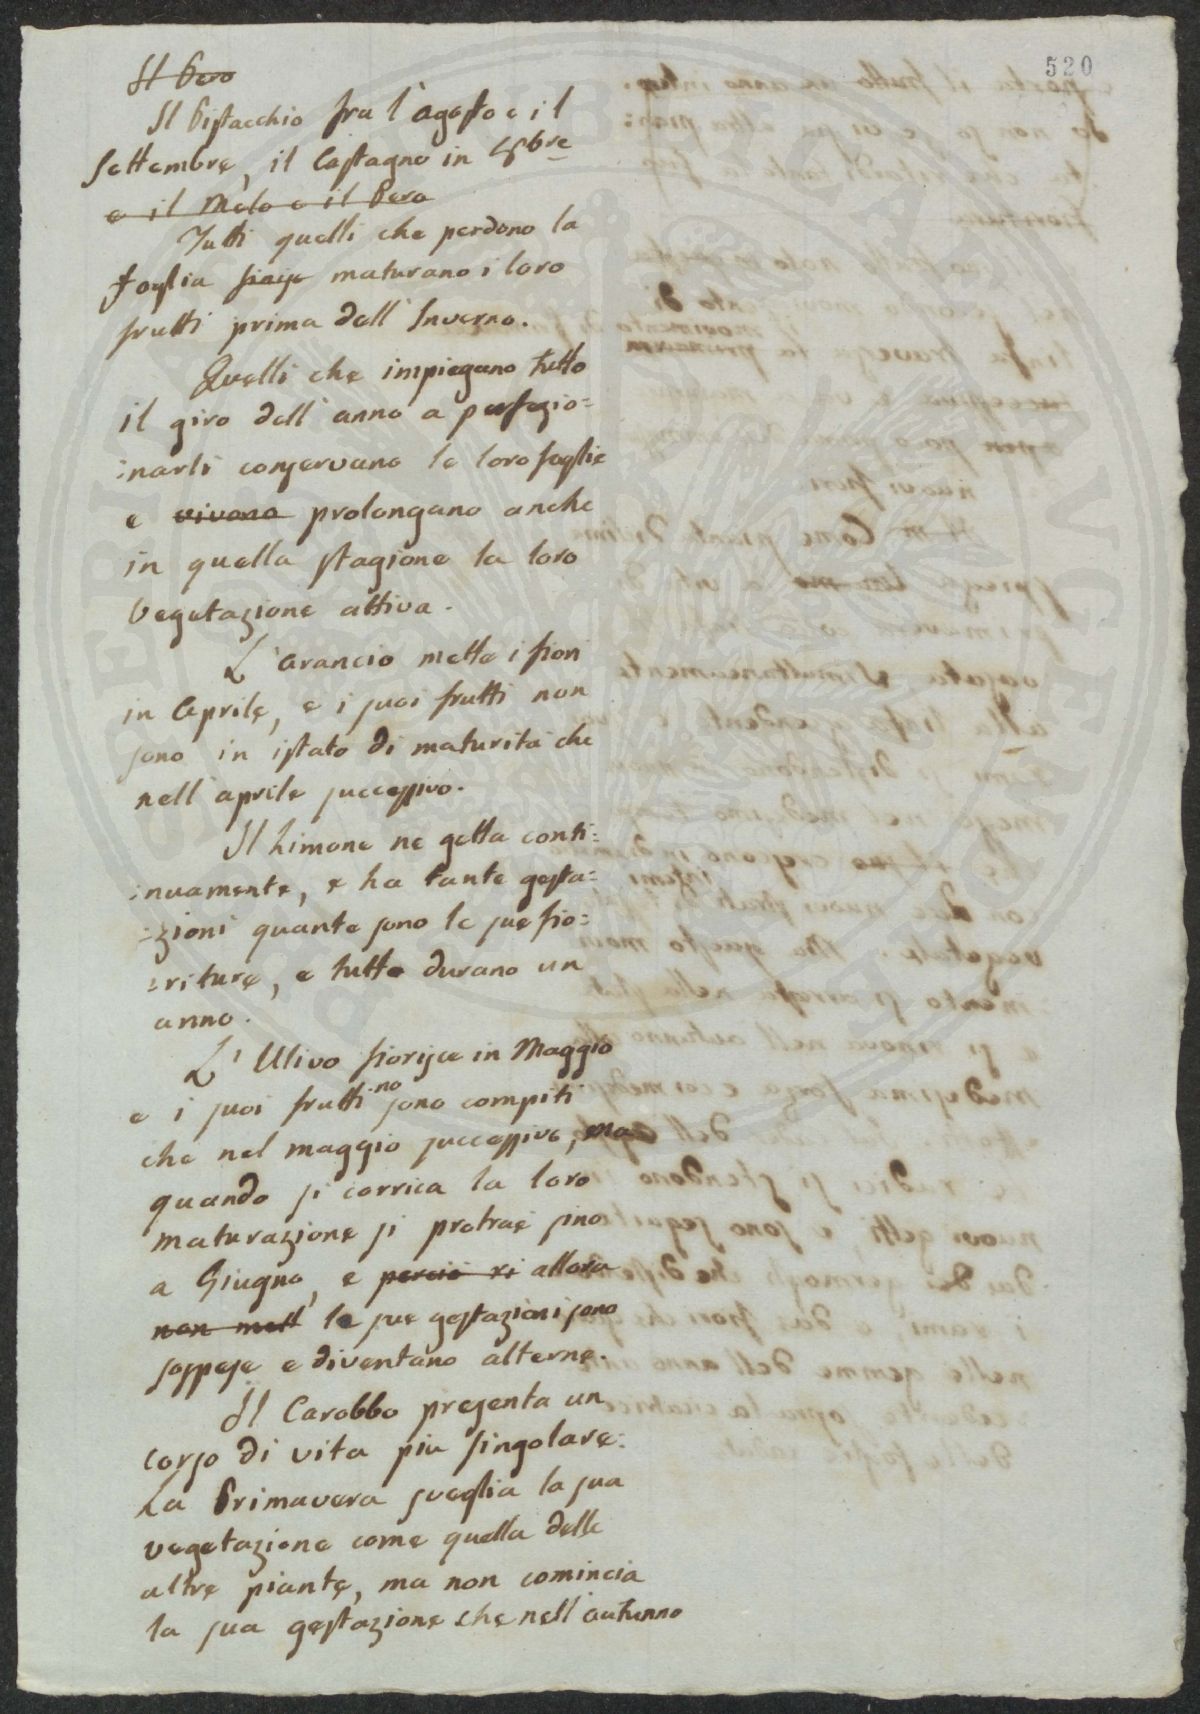 520
Il Pero
Il Pistacchio fra l'agosto e il
Settembre, il Castagno in 8bre
e il Melo e il Pero
Tutti quelli che perdono la
foglia maturano i loro
frutti prima dell'Inverno.
Quelli che impiegano tutto
il giro dell'anno a perfezio=
=narli conservano le loro foglie
e vivono prolongano anche
in quella stagione la loro
Vegetazione attiva.
L'arancio mette i fiori
in Aprile, e i suoi frutti non
sono in istato di maturità che
nell'aprile successivo.
Il Limone ne getta conti=
=nuamente, e ha tante gesta=
=zioni quante sono le sue fio=
=riture, e tutte durano un
anno.
L'Ulivo fiorisce in Maggio
e i suoi frutti no sono compiti
che nel maggio successivo, ma
quando si carrica la loro
maturazione si protrae sino
a Giugno, e perciò ri allora
non mett le sue gestazioni sono
sospese e diventano alterne.
Il Carobbo presenta un
corso di vita più singolare:
La Primavera sveglia la sua
vegetazione come quella delle
altre piante, ma non comincia
la sua gestazione che nell'autunno